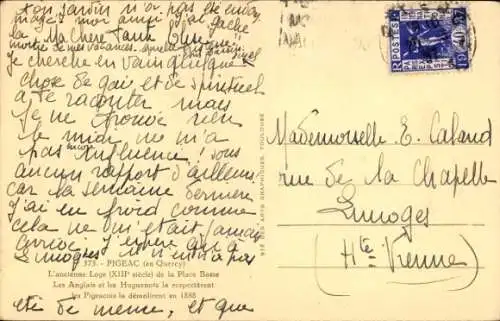 Ton jardin n'a pas été
mage, mon ami j'ai gâché
la Ma chère
moitié de mes vacances.
Je cherche en vain quelque
chose de gai et de spirituel
à te raconter mais
je ne trouve rien
le midi ne m'a
pas influencé! sous
aucun rapport d'ailleurs
car la semaine dernière
j'ai eu froid comme
cela ne m'était jamais
arrivé. J'espère qu'à
Limoges il n'en a pas
375 - PIGEAC (en Quercy)
L'ancienne Loge (XIIIe siècle) de la Place Basse
Les Anglais et les Huguenots la respectèrent
les Pigeacois la démolirent en 1888
été de même, et que
STÉ DES ARTS GRAPHIQUES, TOULOUSE
POSTES
Mademoiselle E. Caland
rue de la Chapelle
Limoges
(Hte Vienne)